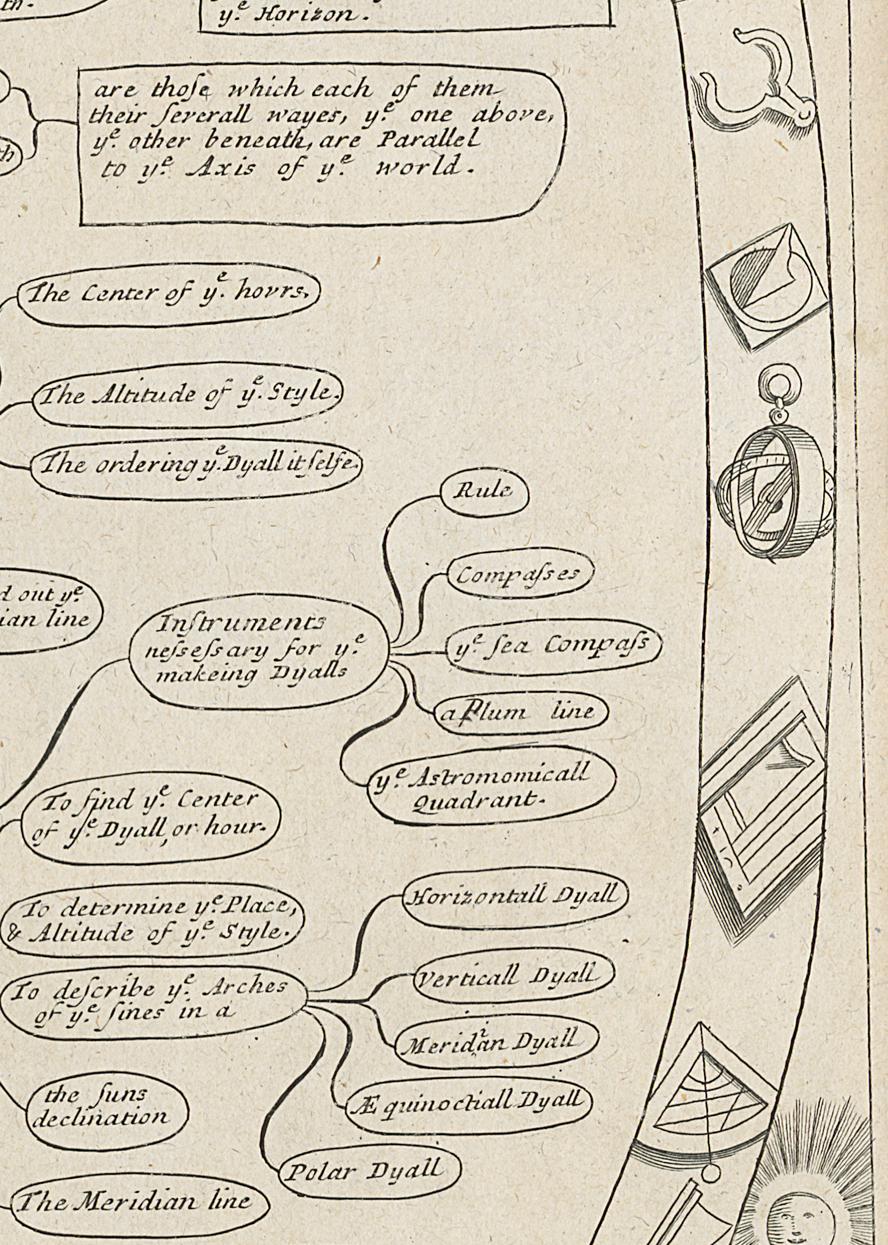 th.
yͤ Horizon.
are thoſe which each of them
their ſeverall wayes, yͤ. one above,
yͤ. other beneath, are Parallel
to yͤ. Axis of yͤ. world.
The Center of yͤ. hovrs.
The Altitude of yͤ. Style.
The ordering yͤ. Dyall it ſelfe.
Rule
Compaſses
yͤ ſea Compaſs
a Plum line
yͤ Astromomicall
Quadrant.
Inſtruments
neſseſsary for yͤ.
makeing Dyalls
out yͤ.
line
To find yͤ. Center
of yͤ. Dyall, or hour.
To determine yͤ. Place,
& Altitude of yͤ. Style.
To deſcribe yͤ. Arches
of yͤ. ſines in a
Horizontall Dyall
Verticall Dyall
Meridian Dyall
Æquinoctiall Dyall
Polar Dyall
the ſuns
declination
The Meridian line